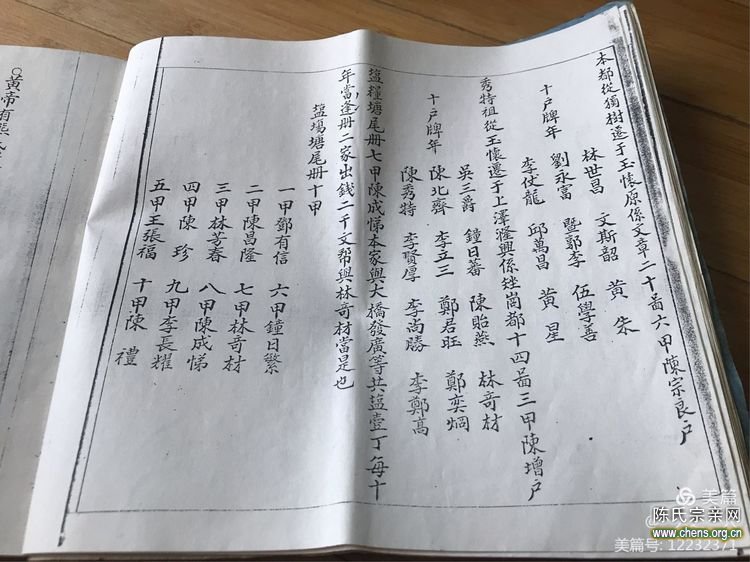 本都從獨樹遷于玉懷原係文章二十啚六甲陳宗良戶
林世昌 文斯韶 黄朱
十戶牌年 劉永富 暨郭李 伍學善
李仗龍 邱萬昌 黄星
秀特祖從玉懷遷于上澤隆興係 崗都十四啚三甲陳增戶
吳三爵 鐘日蕃 陳貽燕 林奇材
十戶牌年 陳北齊 李立三 鄭君旺 鄭奕烱
陳秀特 李賢厚 李尚勝 李鄭高
塩糧塘尾册七甲陳成悌本家與大橋發廣等共塩壹丁每十
年當逢册二家出銭二千文幣與林奇材當是也
塩塲塘尾册十甲
一甲鄧有信 六甲鐘日繁
二甲陳昌隆 七甲林奇材
三甲林芳春 八甲陳成悌
四甲陳珍 九甲李長耀
五甲王張福 十甲陳禮
黄帝有熊
美篇
陈氏宗亲网
www.chens.org.cn
美篇号: 12232371